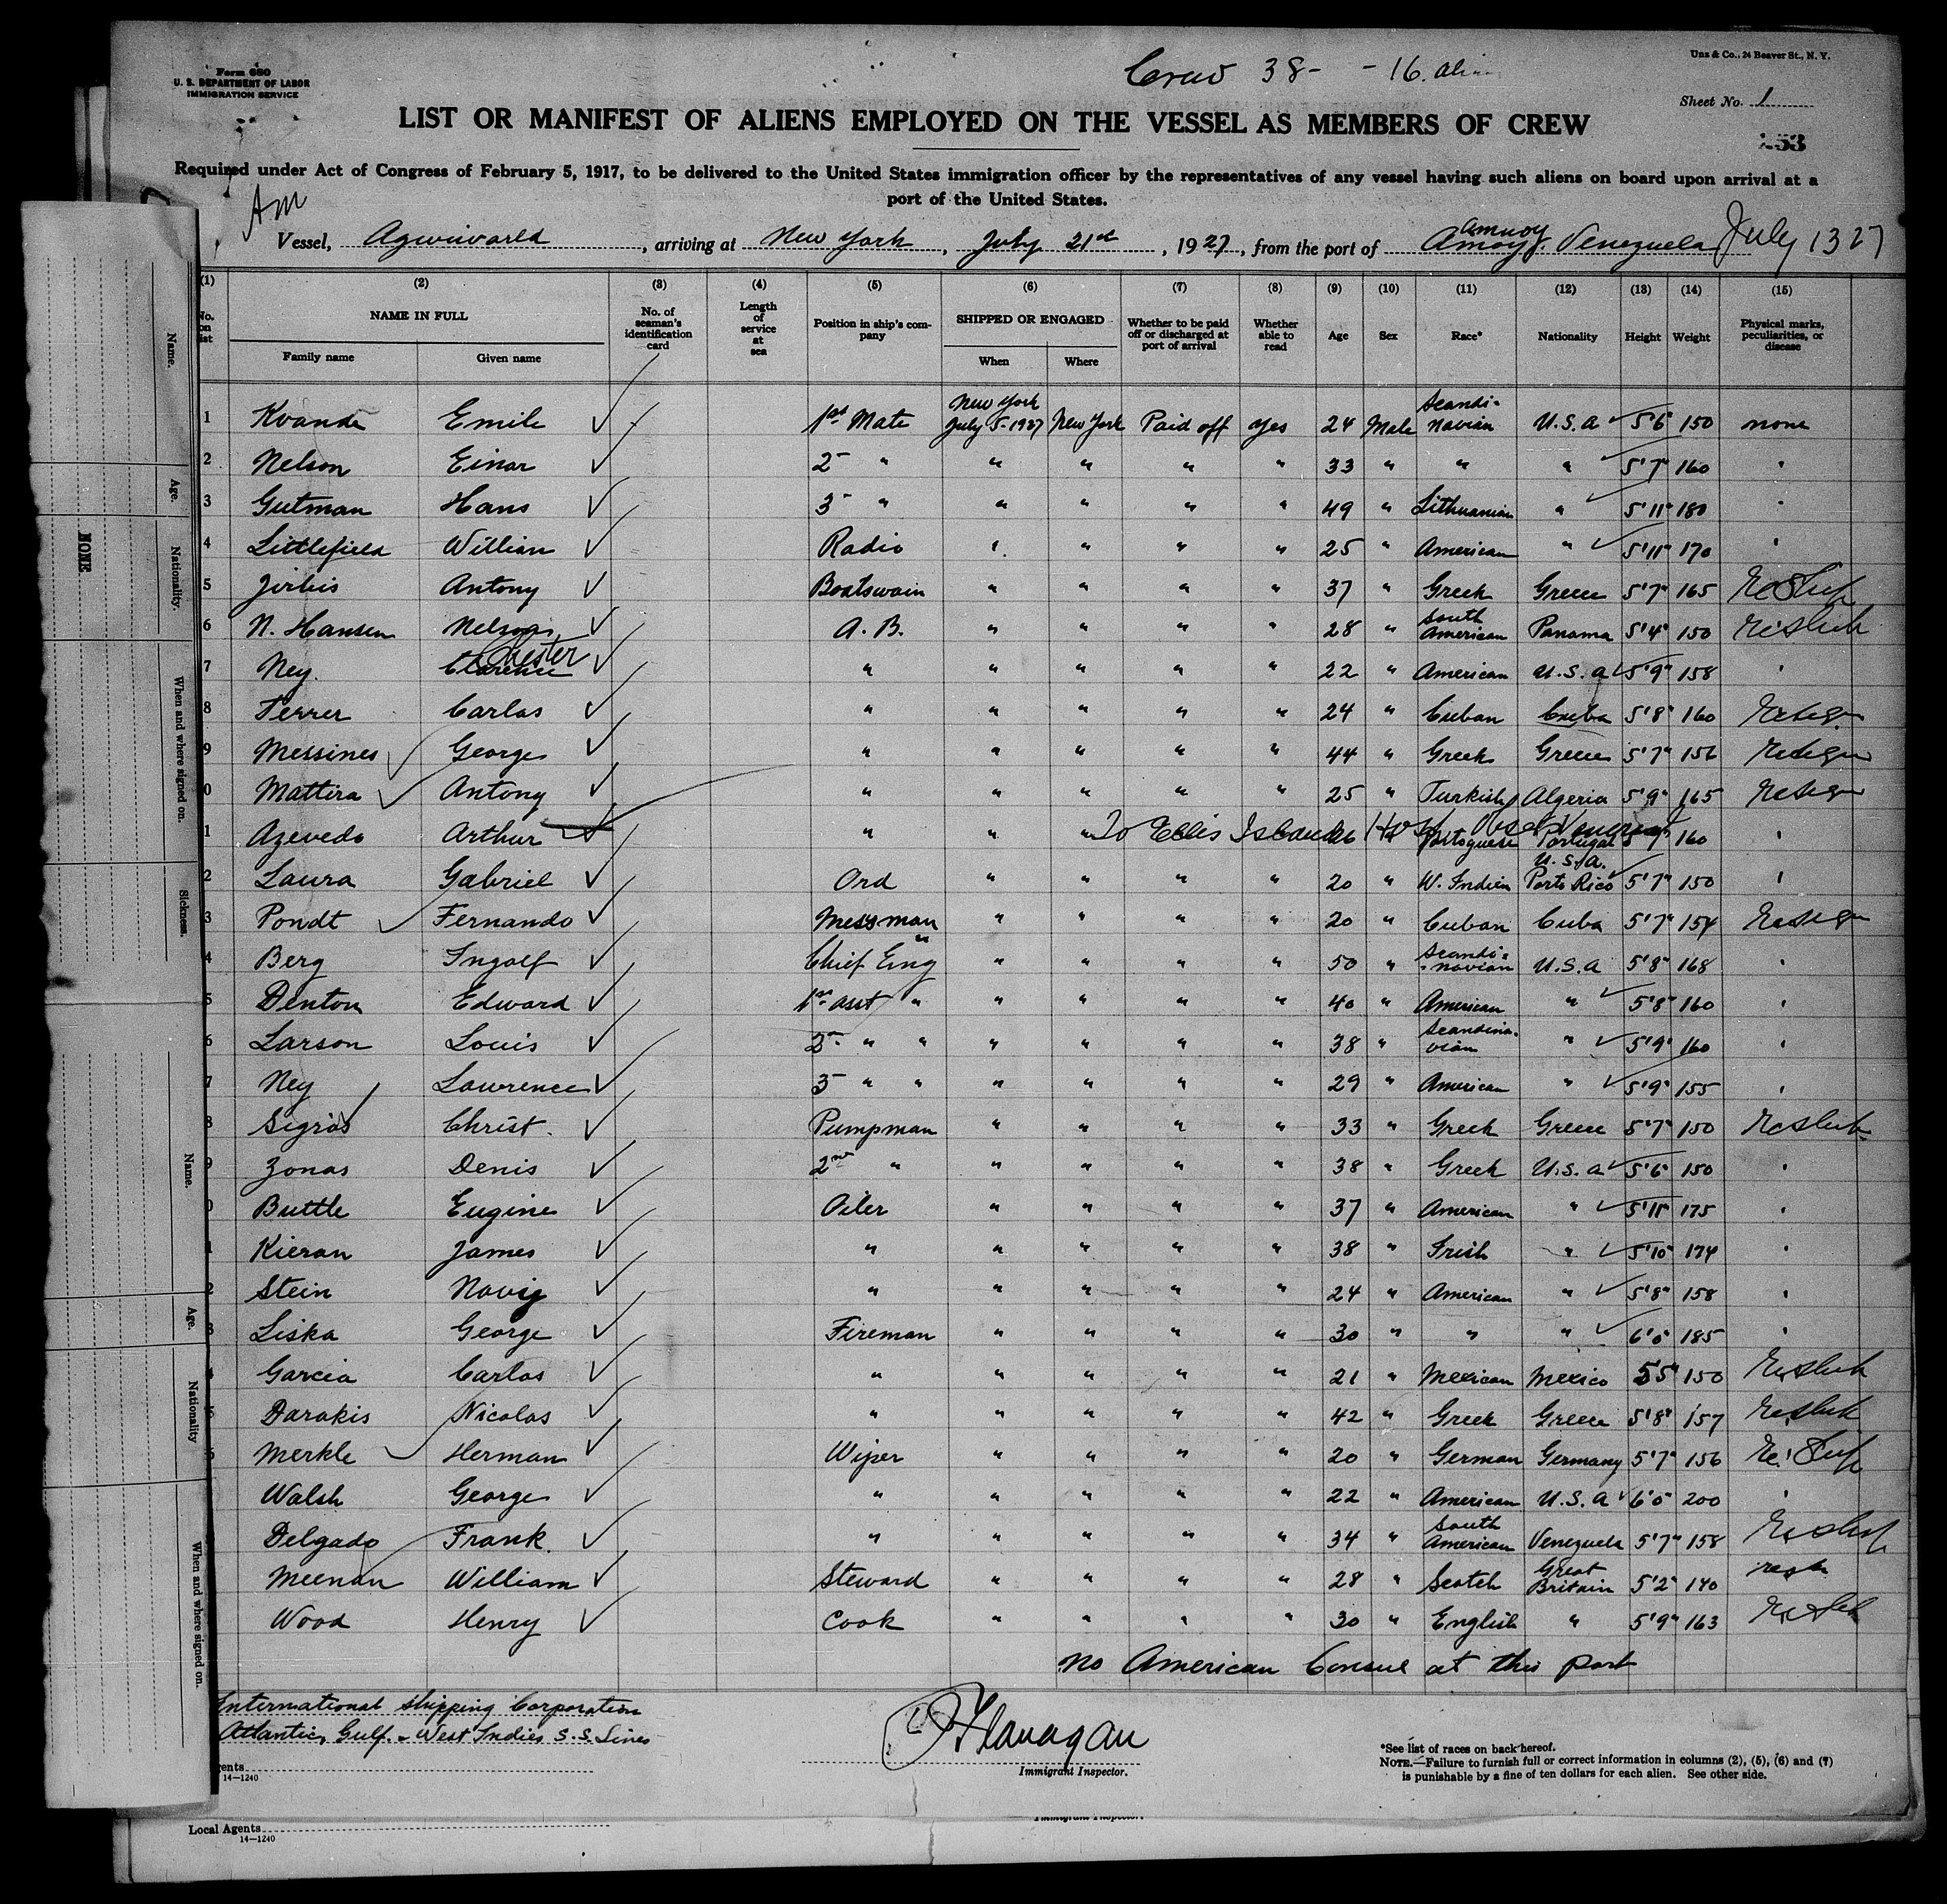 Form 680
U. S. DEPARTMENT OF LABOR
IMMIGRATION SERVICE
Crew 38- -16. alien
Uns & Co., 24 Beaver St., N. Y.
Sheet No. 1
LIST OR MANIFEST OF ALIENS EMPLOYED ON THE VESSEL AS MEMBERS OF CREW
53
Required under Act of Congress of February 5, 1917, to be delivered to the United States immigration officer by the representatives of any vessel having such aliens on board upon arrival at a
port of the United States.
Am
Vessel, Agwiworld, arriving at New York, July 21st, 1927, from the port of Amoy. Venezuela July 13 27
Amuoy
(1) (2) (3) (4) (5) (6) (7) (8) (9) (10) (11) (12) (13) (14) (15)
No. on list NAME IN FULL Family name Given name No. of seaman's identification card Length of service at sea Position in ship's company SHIPPED OR ENGAGED When Where Whether to be paid off or discharged at port of arrival Whether able to read Age Sex Race* Nationality Height Weight Physical marks, peculiarities, or disease
1 Kvande Emile 1st Mate New York July 5-1927 New York Paid off yes 24 Male Scandi-navian U.S.a 5'6 150 none
2 Nelson Einar 2- " " " " " 33 " " " 5'7" 160 "
3 Gutman Hans 3- " " " " " 49 " Lithuanian " 5'11" 180 "
4 Littlefield William Radio " " " " 25 " American " 5'11" 170 "
5 Jirbis Antony Boatswain " " " " 37 " Greek Greece 5'7" 165
6 N. Hansen Nelson A. B. " " " " 28 " South American Panama 5'4" 150
7 Ney. Clarence Chester " " " " " 22 " American U.S.a 5'9" 158 "
8 Ferrer Carlos " " " " " 24 " Cuban Cuba 5'8" 160
9 Messines George " " " " " 44 " Greek Greece 5'7" 156
0 Mattira Antony " " " " " 25 " Turkish Algeria 5'9" 165
1 Azevedo Arthur " " " To Ellis Island Hosp Portoguese Portugal 5'7" 160 "
2 Laura Gabriel Ord " " " " 20 " W. Indien U.S.A. Porto Rico 5'7" 150 "
3 Pondt Fernando Messman " " " " 20 " Cuban Cuba 5'7" 154
4 Berg Ingolf Chief Eng " " " " 50 " Scandi-navian U.S.a 5'8" 168 "
5 Denton Edward 1st asst " " " " " 40 " American " 5'8" 160 "
6 Larson Louis 2- " " " " " " 38 " Scandina-vian " 5'9" 160 "
7 Ney Lawrence 3- " " " " " " 29 " American " 5'9" 155 "
8 Sigros Christ. Pumpman " " " " 33 " Greek Greece 5'7" 150
9 Zonas Denis 2nd " " " " " 38 " Greek U.S.a 5'6" 150 "
0 Buttle Eugine Oiler " " " " 37 " American " 5'11" 175 "
1 Kieran James " " " " " 38 " Irish " 5'10" 174 "
2 Stein Novig " " " " " 24 " American " 5'8" 158 "
3 Liska George Fireman " " " " 30 " " " 6'0" 185 "
4 Garcia Carlos " " " " " 21 " Mexican Mexico 55" 150
Darakis Nicolas " " " " " 42 " Greek Greece 5'8" 157
Merkle Herman Wiper " " " " 20 " German Germany 5'7" 156
Walsh George " " " " " 22 " American U.S.a 6'0" 200 "
Delgado Frank. " " " " " 34 " South American Venezuela 5'7" 158
Meenan William Steward " " " " 28 " Scotch Great Britain 5'2" 140
Wood Henry Cook " " " " 30 " English " 5'9" 163
No American Consul at this port
International Shipping Corporation
Atlantic, Gulf. & West Indies S.S. Lines
Flanagan
Immigrant Inspector.
*See list of races on back hereof.
NOTE.—Failure to furnish full or correct information in columns (2), (5), (6) and (7)
is punishable by a fine of ten dollars for each alien. See other side.
14—1240
Immigrant Inspector.
Local Agents
14—1240
Name.
Age.
Nationality.
NONE
When and where signed on.
Sickness.
Name.
Age.
Nationality
When and where signed on.